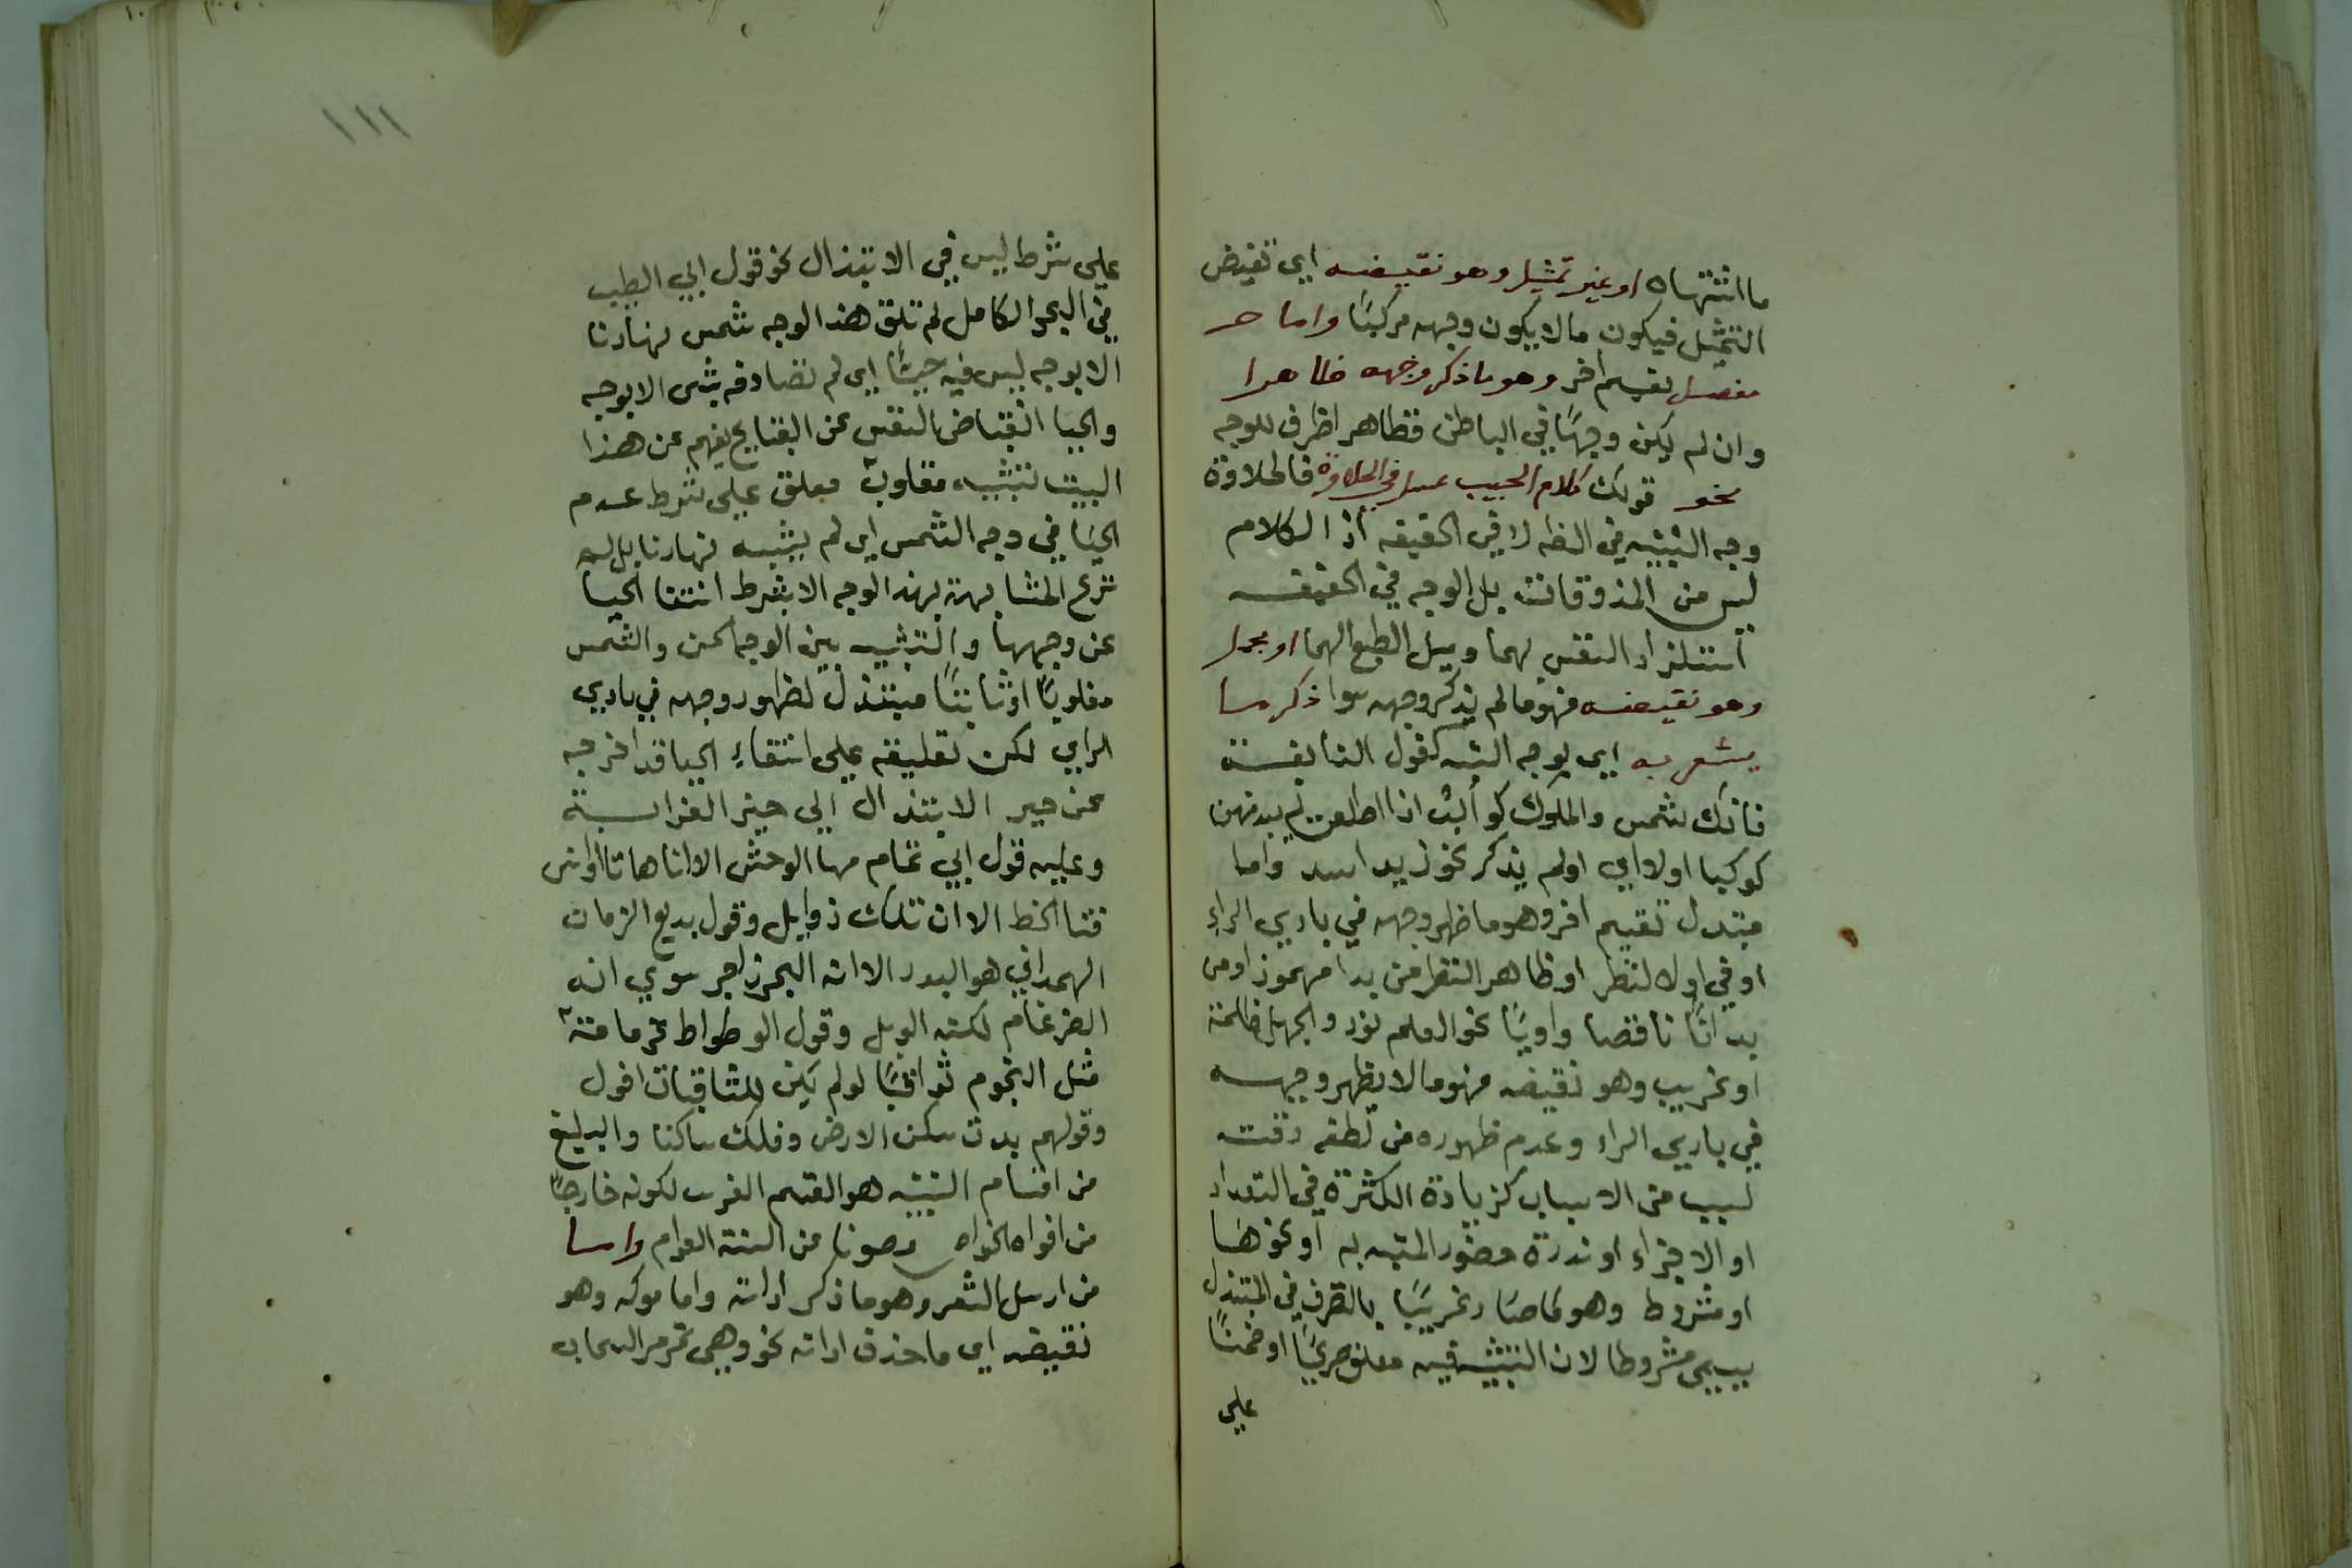 ما اشتهاه او غير تمثيل وهو نقيضه اي نقيض
التمثيل فيكون ما لا يكون وجهه مركبًا واما
مفصل تقسيم اخر وهو ما ذكر وجهه ظاهرا
وان لم يكن وجهًا في الباطن فظاهرا ظرف للوجه
نحو قولك كلام الحبيب عسل في الحلاوة فالحلاوة
وجه التشبيه في الظه لا في الحقيقه اذ الكلام
ليس من المذوقات بل الوجه في الحقيقه
استلذاذ النفس بهما وميل الطبع الهما او مجمل
وهو نقيضه فهو ما لم يذكر وجهه سوا ذكر ما
يشعر به اي بوجه الشبه كقول النابغة
فانك شمس والملوك كواكب اذا اطلعت لم يبد منهن
كوكبا اولا اي او لم يذكر نحو زيد اسد واما
مبتذل تقسيم اخر وهو ما ظهر وجهه في بادي الراء
او في اول النظر او ظاهر النظر من بدا مهموز او من
بدا ناقصا واويًا نحو العلم نور والجهل ظلمة
او غريب وهو نقيضه فهو ما لا يظهر وجهه
في بادي الراء وعدم ظهوره من لطفه دقت
لسبب من الاسباب كزيادة الكثرة في التعداد
او الاجزاء او ندرة حضور المشبه به او نحوها
او مشروط وهو ما صار غريبًا بالتصرف في المبتذل
يسمي مشروطا لان التشبيه فيه معلق صريحًا او ضمنًا
علي
١١١
علي شرط ليس في الابتذال نحو قول ابي الطيب
في البحر الكامل لم تلق هذا الوجه شمس نهارنا
الا بوجه ليس فيه حياء اي لم تصادفه بشى الا بوجه
والحيا انقباض النفس عن القبايح يفهم عن هذا
البيت تشبيه مقلوب معلق علي شرط عدم
الحيا في وجه الشمس اي لم يشبه نهارنا بل له
تدع المشابهة بهذا الوجه الا بشرط انتفا الحيا
عن وجهها والتشبيه بين الوجه الحسن والشمس
مقلوبًا او ثابتًا مبتذل لظهور وجهه في بادي
الراي لكن تعليقه علي انتفاءِ الحيا قد اخرجه
عن حيز الابتذال الي حيز الغرابة
وعليه قول ابي تمام مها الوحش الا ان هاتا اوانس
قنا الخط الا ان تلك ذوابل وقول بديع الزمان
الهمداني هو البدر الا انه البحر زاخر سوي انه
الضرغام لكنه الوبل وقول الوطواط عزماته
مثل النجوم ثواقبًا لو لم يكن للثاقبات افول
وقولهم بدت سكن الارض وفلك ساكنا والبليغ
من اقسام التشبيه هو القسم الغرب لكونه خارجًا
من افواه الخواص وصونا من السنة العوام واما
من ارسل الشعر وهو ما ذكر اداته واما موكد وهو
نقيضه اي ما حذف اداته نحو وهي تمر مر السحاب